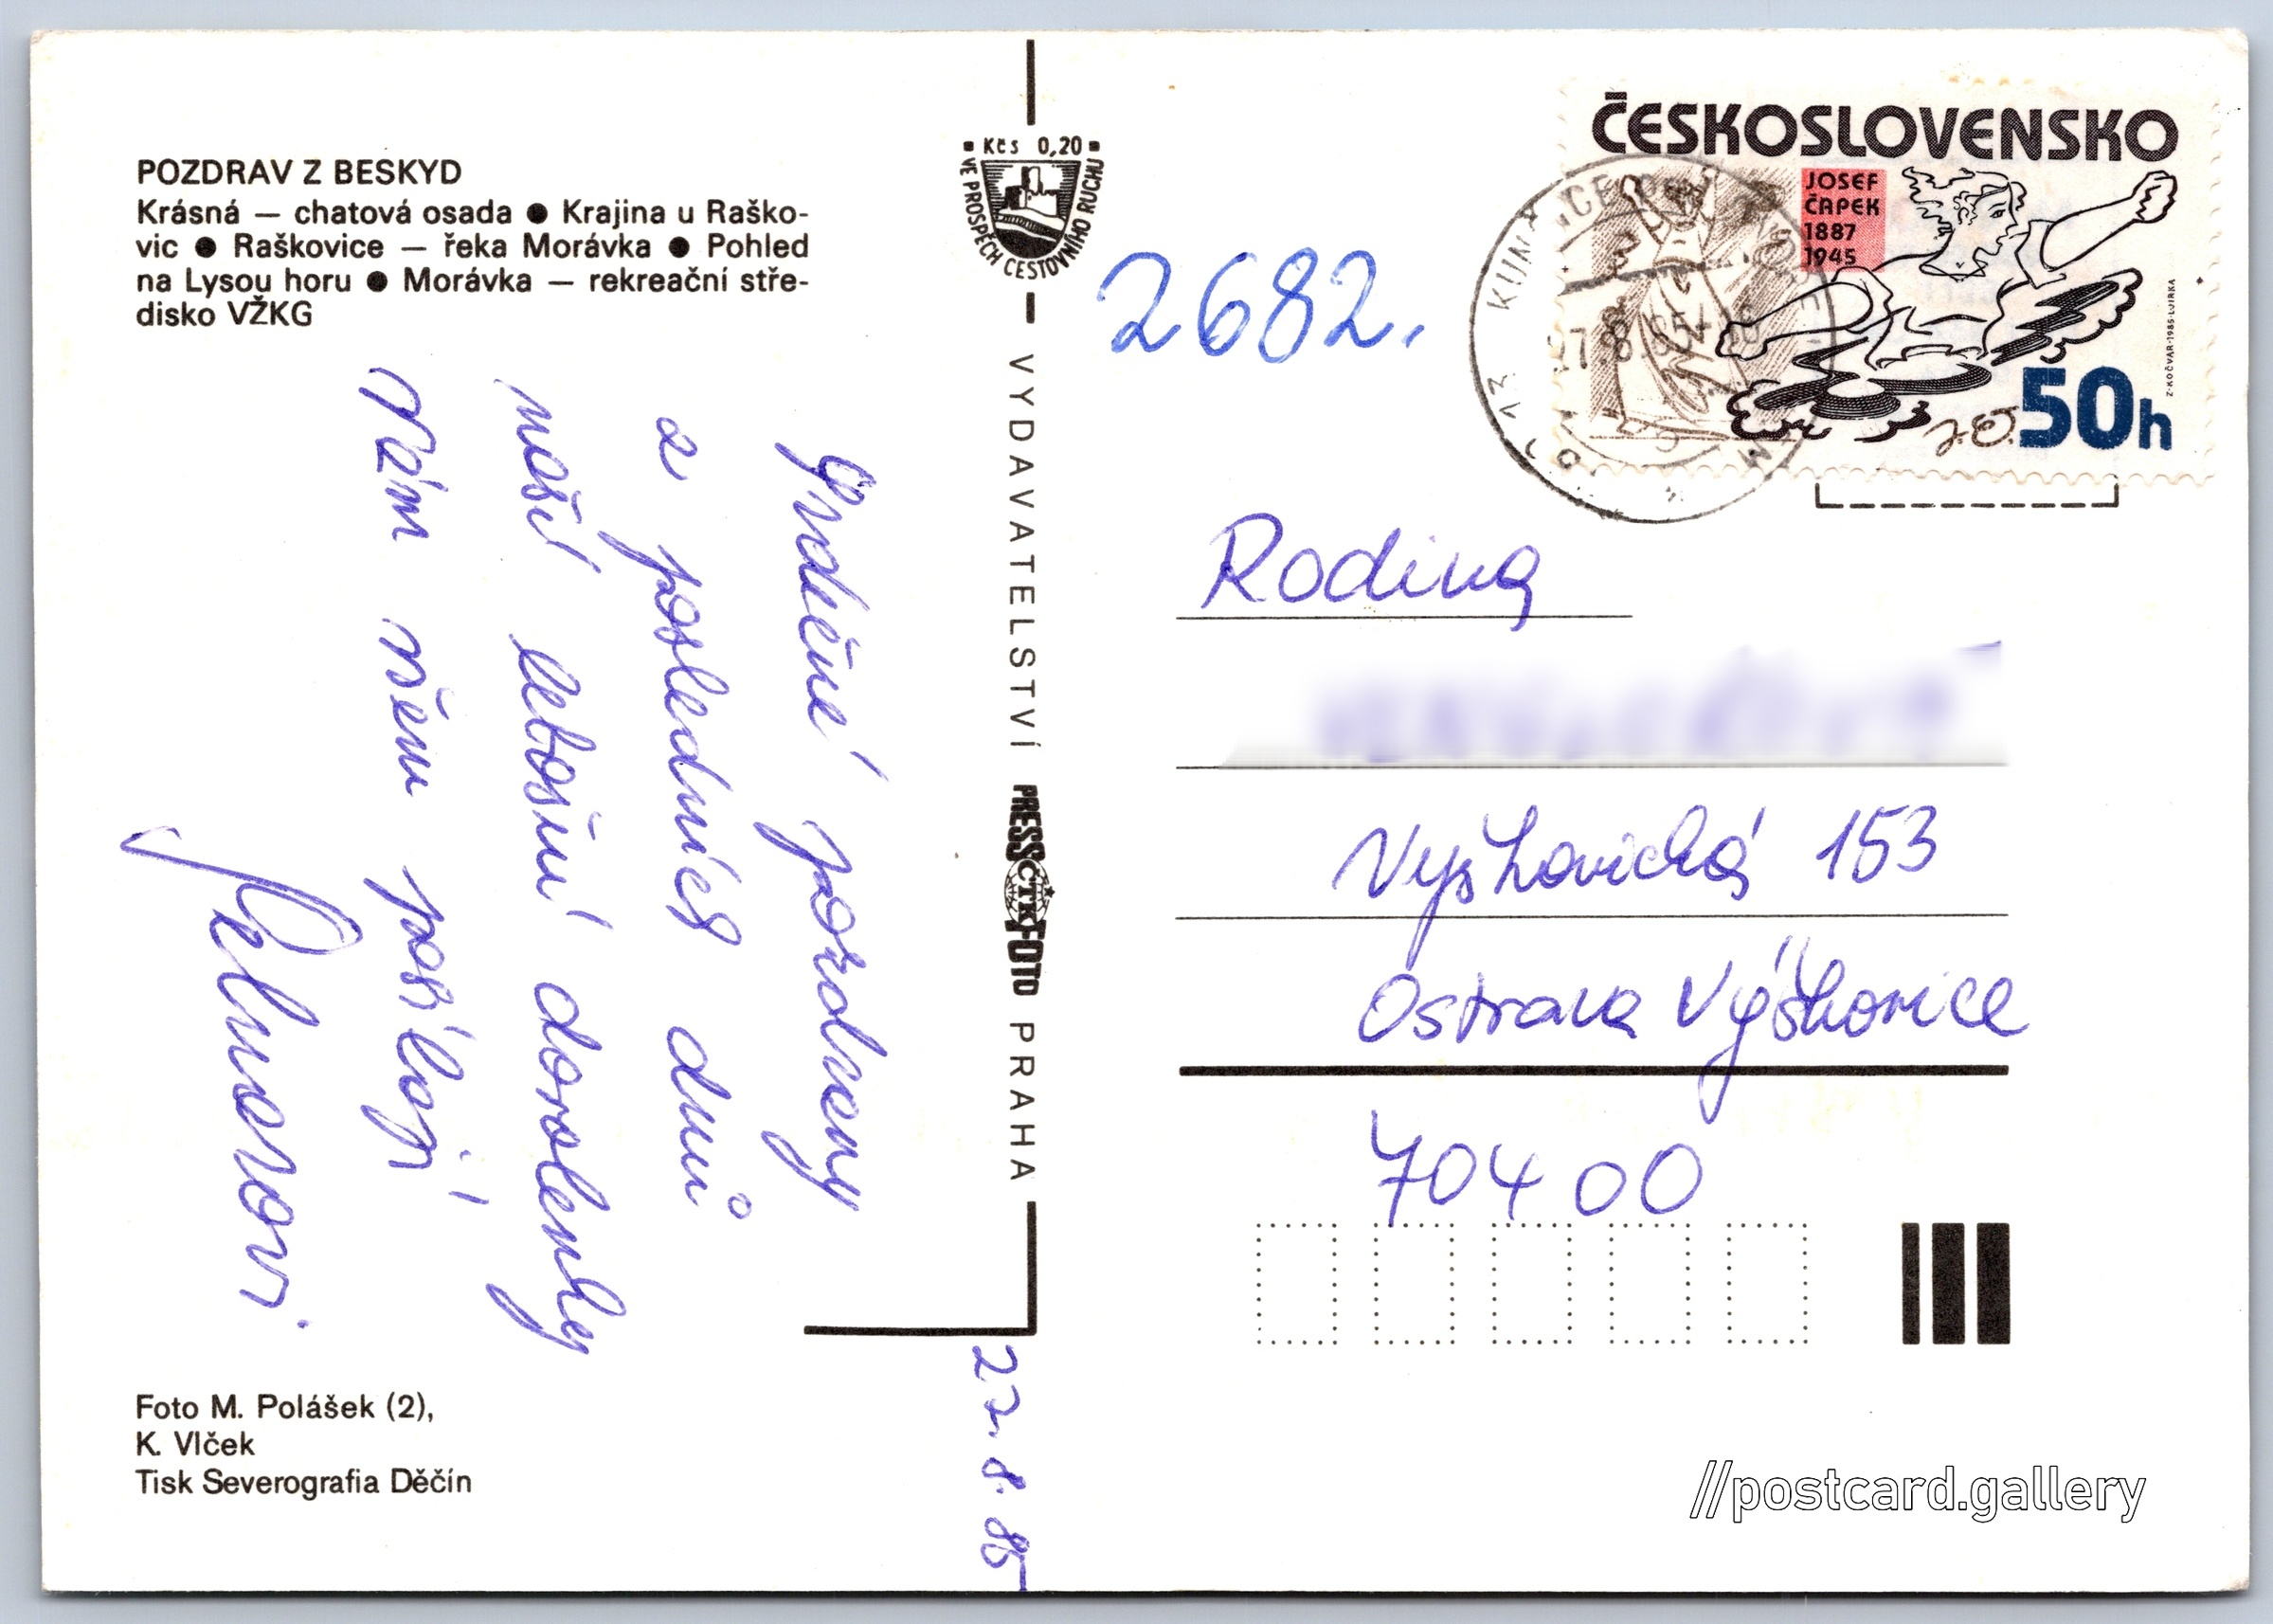 POZDRAV Z BESKYD
Krásná — chatová osada ● Krajina u Raško-
vic ● Raškovice — řeka Morávka ● Pohled
na Lysou horu ● Morávka — rekreační stře-
disko VŽKG
Srdečné pozdravy
z posledních dnů
naší letošní dovolenky
Vám všem posílají
27.8.85
Foto M. Polášek (2),
K. Vlček
Tisk Severografia Děčín
Kčs 0,20
VE PROSPĚCH CESTOVNÍHO RUCHU
VYDAVATELSTVÍ PRESSČTKFOTO PRAHA
2682.
ČESKOSLOVENSKO
JOSEF
ČAPEK
1887
1945
50h
J.Č.
Z·KOČVAR·1985·L·JIRKA
Rodina
Výškovická 153
Ostrava Výškovice
704 00
//postcard.gallery